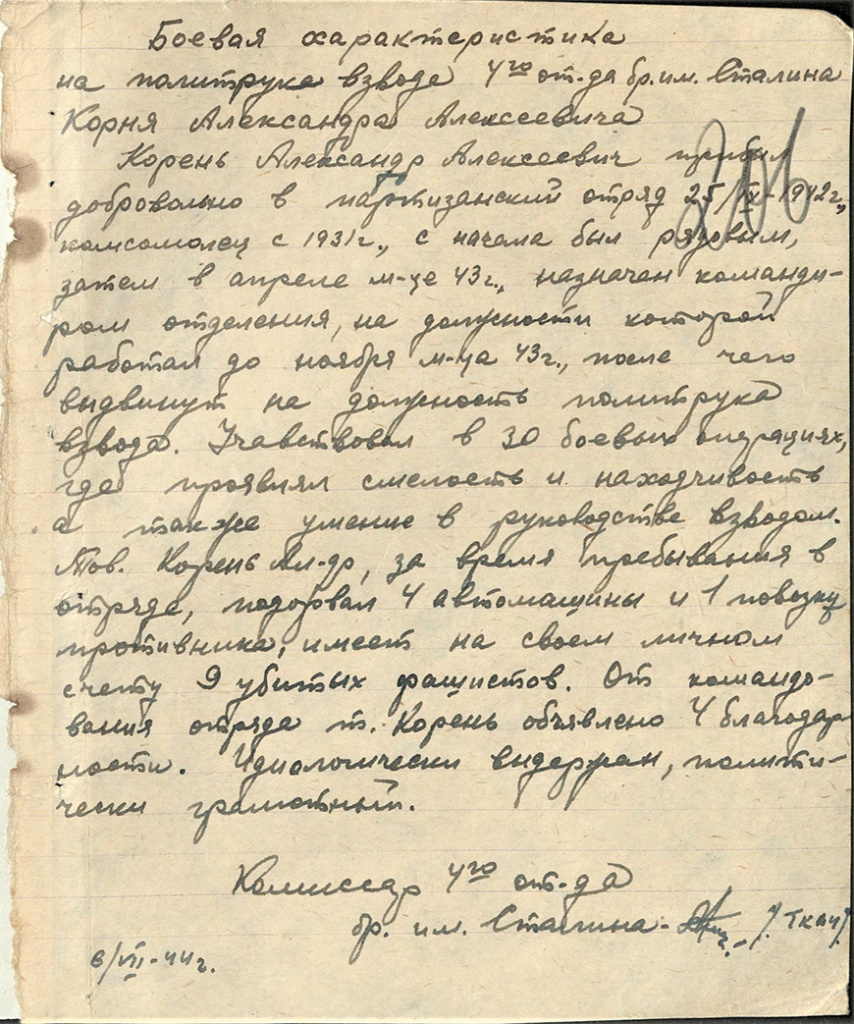 Боевая характеристика
на политрука взвода 4го от-да бр. им. Сталина
Корня Александра Алексеевича
Корень Александр Алексеевич прибыл
добровольно в партизанский отряд 25/IX-1942г.,
комсомолец с 1931г., с начала был рядовым,
затем в апреле м-це 43г., назначен команди-
ром отделения, на должности которой
работал до ноября м-ца 43г., после чего
выдвинут на должность политрука
взвода. Учавствовал в 30 боевых операциях,
где проявлял смелость и находчивость
а также умение в руководстве взводом.
Тов. Корень Ал-др, за время пребывания в
отряде, подорвал 4 автомашины и 1 повозку
противника, имеет на своем личном
счету 9 убитых фашистов. От командо-
вания отряда т. Корень объявлено 4 благодар
ности. Идиологически выдержан, полити-
чески грамотный.
Комиссар 4го от-да
бр. им. Сталина - /Ткач/
6/VII-44г.